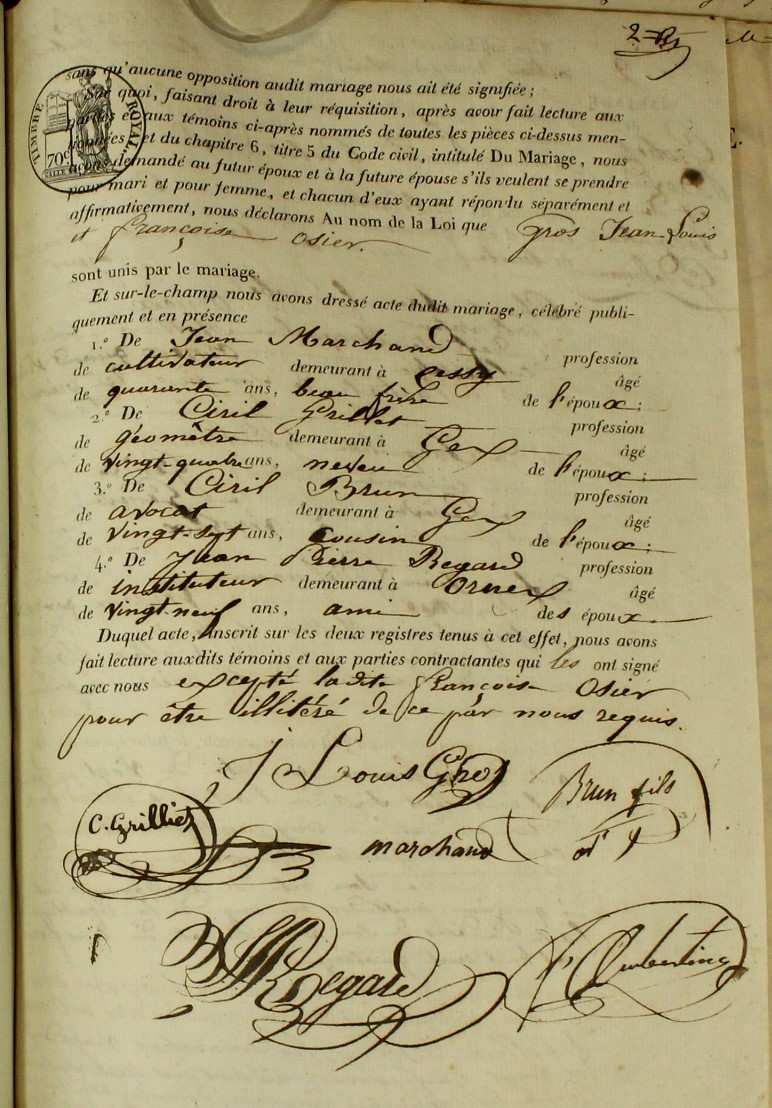 2
sans qu'aucune opposition audit mariage nous ait été signifiée ;
Sur quoi, faisant droit à leur réquisition, après avoir fait lecture aux
parties et aux témoins ci-après nommés de toutes les pièces ci-dessus men-
tionnées, et du chapitre 6, titre 5 du Code civil, intitulé Du Mariage, nous
avons demandé au futur époux et à la future épouse s'ils veulent se prendre
pour mari et pour femme, et chacun d'eux ayant répondu séparément et
affirmativement, nous déclarons Au nom de la Loi que Gros Jean Louis
et françoise Osier.
TIMBRE ROYAL
70c
sont unis par le mariage.
Et sur-le-champ nous avons dressé acte dudit mariage, célébré publi-
quement et en présence
1.° De Jean Marchand profession
de cultivateur demeurant à Cessy âgé
de quarante ans, beau frère de l'époux ;
2.° De Ciril Grillet profession
de géomètre demeurant à Gex âgé
de vingt-quatre ans, neveu de l'époux ;
3.° De Ciril Brun profession
de avocat demeurant à Gex âgé
de vingt-sept ans, cousin de l'époux ;
4.° De Jean Pierre Regard profession
de instituteur demeurant à Ornex âgé
de vingt neuf ans, ami des époux
Duquel acte, inscrit sur les deux registres tenus à cet effet, nous avons
fait lecture auxdits témoins et aux parties contractantes qui les ont signé
avec nous excepté ladite françoise Osier
pour être illitéré de ce par nous requis.
J Louis Gros
Brun fils
C. Grilliet
marchand
Regard